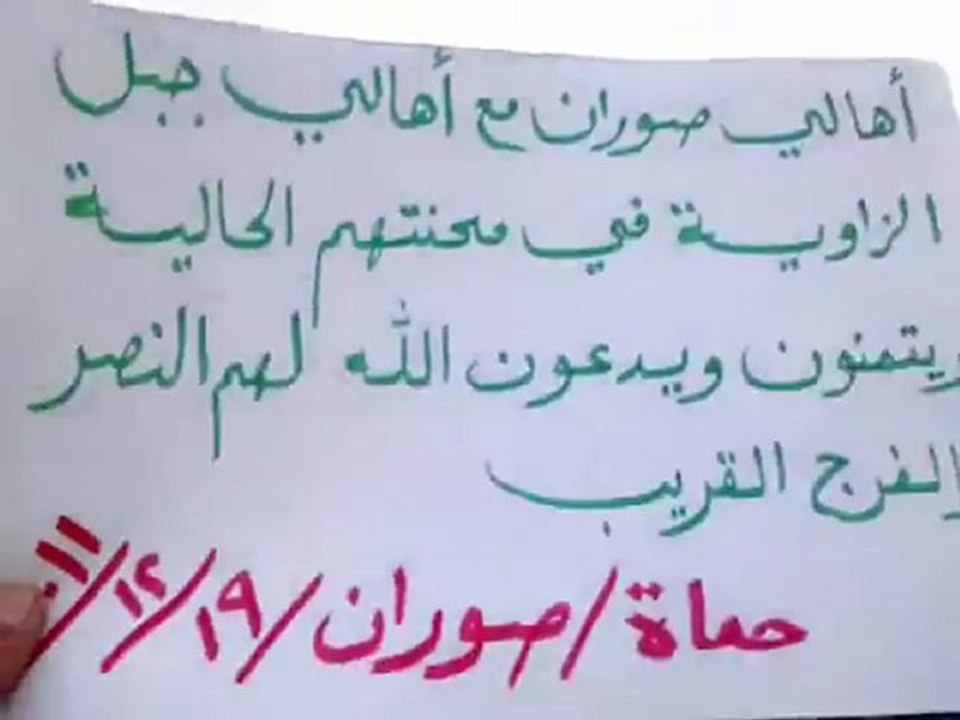 أهالي صوران مع أهالي جبل
الزاوية في محنتهم الحالية
ويتمنون ويدعون الله لهم النصر
والفرج القريب
حماة/صوران/١٩/١٢/٠١١